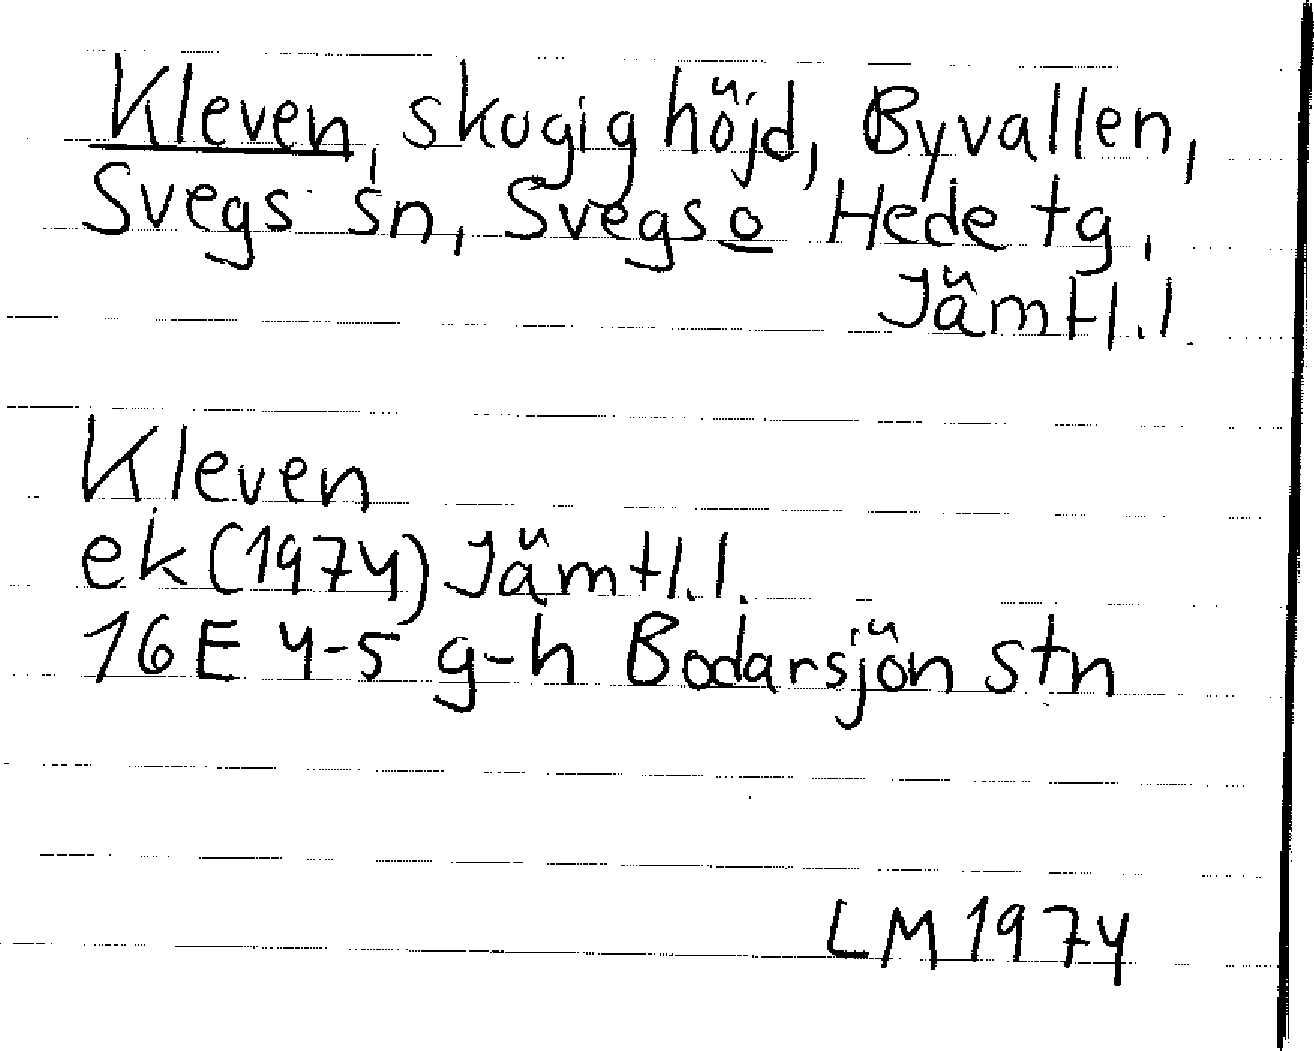 Kleven, skogig höjd, Byvallen,
Svegs sn, Svegs o Hede tg,
Jämtl.l.
Kleven
ek (1974) Jämtl.l.
16E 4-5 g-h Bodarsjön stn
LM 1974